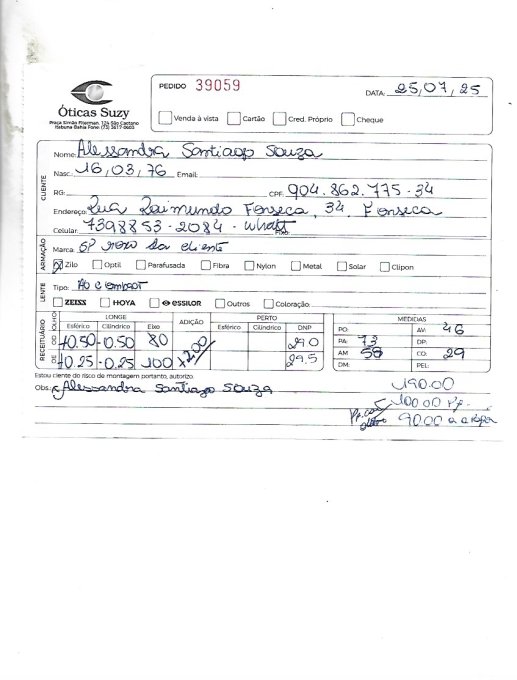 Óticas Suzy
Praça Simão Fiterman, 124 São Caetano
Itabuna Bahia Fone: (73) 3617-0603
PEDIDO 39059
DATA: 25/07/25
Venda à vista Cartão Cred. Próprio Cheque
CLIENTE
Nome: Alessandra Santiago Souza
Nasc. 16/03/76 Email:
RG: CPF: 904.862.775-34
Endereço: Rua Raimundo Fonseca, 34, Fonseca
Celular: 7398853-2084 - What
ARMAÇÃO
Marca: da cliente
Zilo Optil Parafusada Fibra Nylon Metal Solar Clipon
LENTE
Tipo:
ZEISS HOYA essilor Outros Coloração:
RECEITUÁRIO
OLHO LONGE ADIÇÃO PERTO MEDIDAS
Esférico Cilíndrico Eixo Esférico Cilíndrico DNP
OD +0.50 -0.50 80 +2.00 29.0
OE +0.25 -0.25 100 29.5
PO: AV: 46
PA: 73 DP:
AM 58 CO: 29
DM: PEL:
Estou ciente do risco de montagem portanto, autorizo.
Obs.: Alessandra Santiago Souza
190.00
100.00 Pp.
90.00